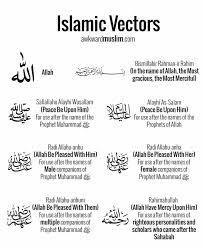 Islamic Vectors
awkwardmuslim.com
الله
Allah
Bismillahir Rahman ir Rahim
(In the name of Allah, the Most gracious, the Most Merciful)
Sallallahu Alayhi Wasallam
(Peace Be Upon Him)
For use after the name of the
Prophet Muhammad ﷺ
Alayhi As-Salam
(Peace Be Upon Him)
For use after the names of the
Prophets of Allah
Radi Allahu anhu
(Allah Be Pleased With Him)
For use after names of
Male companions of
Prophet Muhammad ﷺ
Radi Allahu anha
(Allah Be Pleased With Her)
For use after names of
Female companions of
Prophet Muhammad ﷺ
Radi Allahu anhum
(Allah Be Pleased With Them)
For use after names of
multiple companions of
Prophet Muhammad ﷺ
Rahimahullah
(Allah Have Mercy Upon Him)
For use after names of
righteous personalities and
scholars who came after the
Sahabah